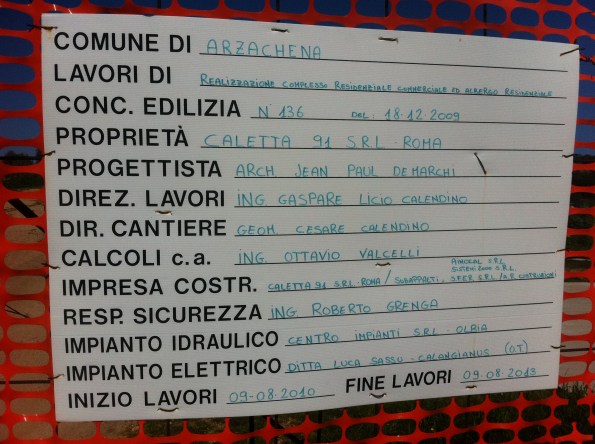 COMUNE DI ARZACHENA
LAVORI DI REALIZZAZIONE COMPLESSO RESIDENZIALE COMMERCIALE ED ALBERGO RESIDENZIALE
CONC. EDILIZIA N° 136 DEL: 18.12.2009
PROPRIETÀ CALETTA 91 SRL · ROMA
PROGETTISTA ARCH JEAN PAUL DE MARCHI
DIREZ. LAVORI ING. GASPARE LICIO CALENDINO
DIR. CANTIERE GEOM. CESARE CALENDINO
CALCOLI c.a. ING. OTTAVIO VALCELLI
IMPRESA COSTR. CALETTA 91 SRL · ROMA / SUBAPPALTI. SRL SRL SRL / COSTRUZIONI
RESP. SICUREZZA ING ROBERTO GRENGA
IMPIANTO IDRAULICO CENTRO IMPIANTI SRL - OLBIA
IMPIANTO ELETTRICO DITTA LUCA SASSU - CALANGIANUS (OT)
INIZIO LAVORI 09-08-2010 FINE LAVORI 09-08-2013